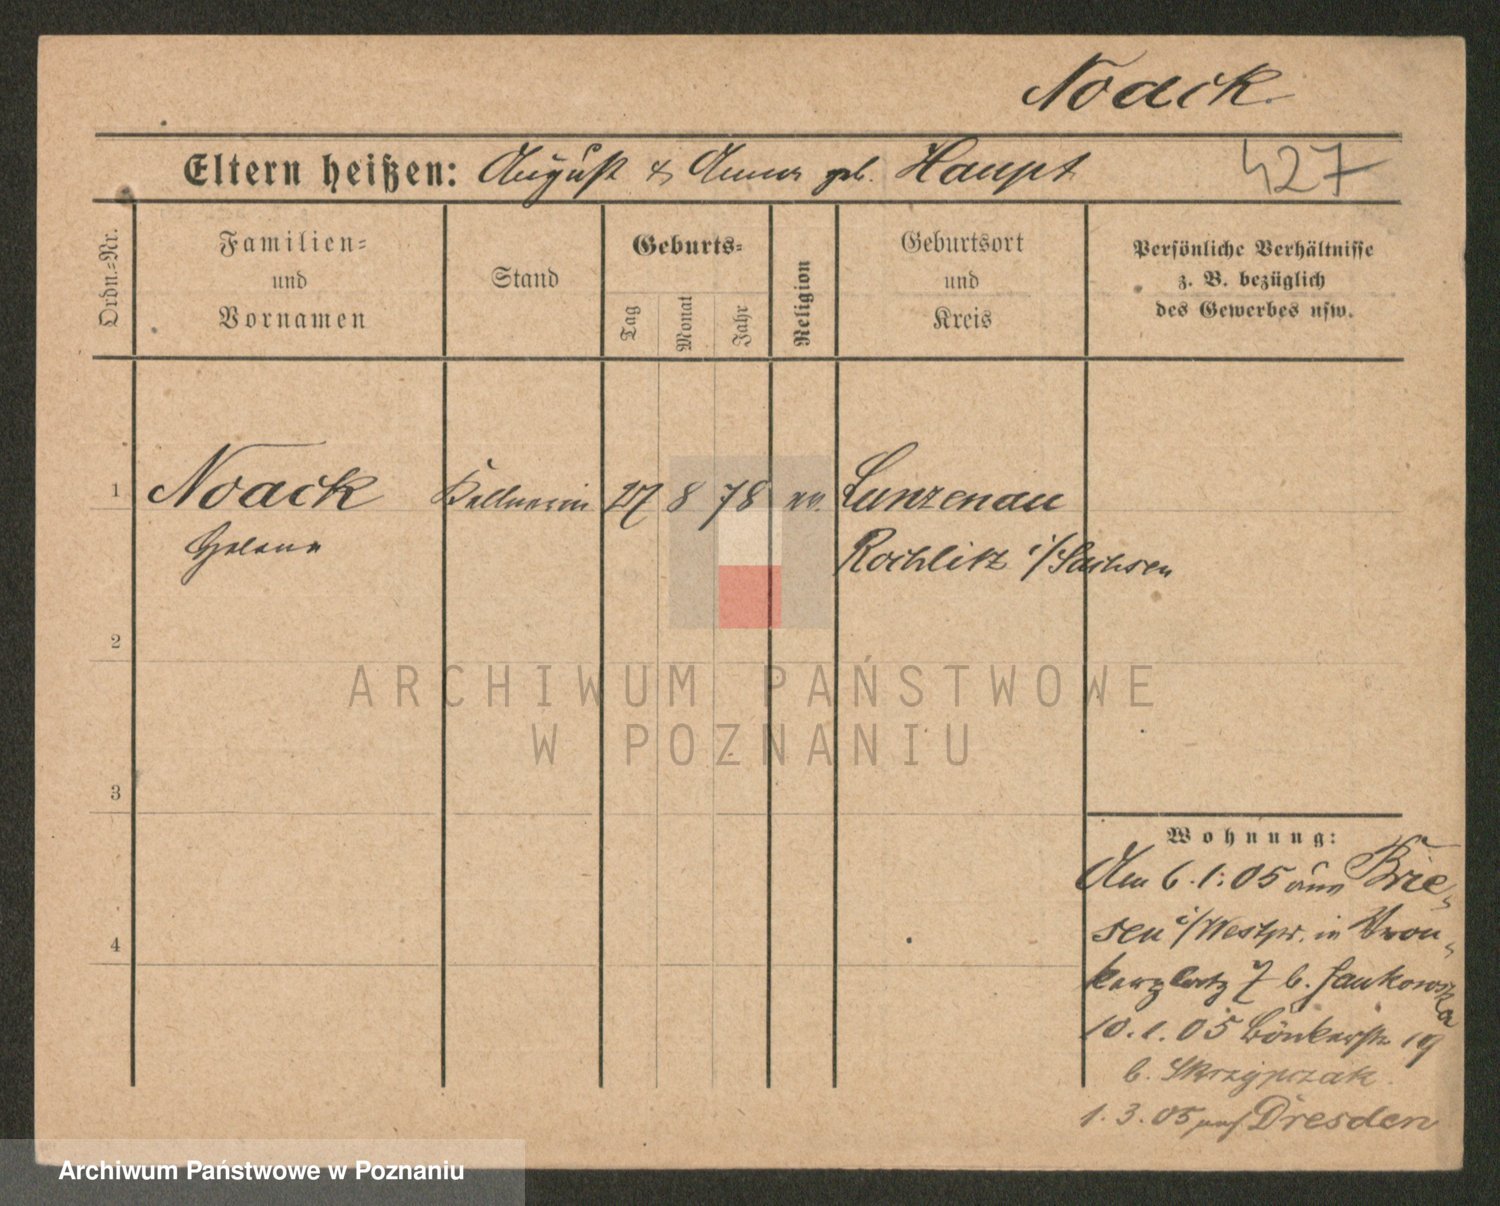 Noack
Eltern heißen: August & Anna geb. Haupt
427
Ordn.-Nr.
Familien- und Vornamen
Stand
Geburts-
Tag
Monat
Jahr
Religion
Geburtsort und Kreis
Persönliche Verhältnisse
z. B. bezüglich
des Gewerbes usw.
1 Noack Kellnerin 27 8 78 ev. Lunzenau
Helene Rochlitz i/Sachsen
2
3
4
Wohnung:
Am 6.1.05 aus Brie-
sen i/Westpr. in Wron-
kerplatz 7 b. Jankowska
10.1.05 Bönkerstr 19
b. Skrzypczak.
1.3.05 auf Dresden
ARCHIWUM PAŃSTWOWE
W POZNANIU
Archiwum Państwowe w Poznaniu